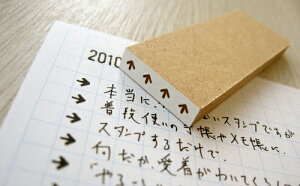 2010
→ 本当に いスタンプですが
→ 普段使いの手帳やメモ帳に
→ スタンプするだけで、
→ 何だか愛着がわいてくる
→ "やる